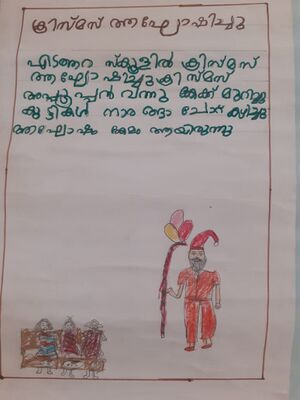 ക്രിസ്മസ് ആഘോഷിച്ചു
എടത്തറ സ്കൂളിൽ ക്രിസ്മസ്
ആഘോഷിച്ചു ക്രിസ്മസ്
അപ്പൂപ്പൻ വന്നു കേക്ക് മുറിച്ചു
കുട്ടികൾ നാരങ്ങാ ചോറ് കഴിച്ചു
ആഘോഷം കേമം ആയിരുന്നു